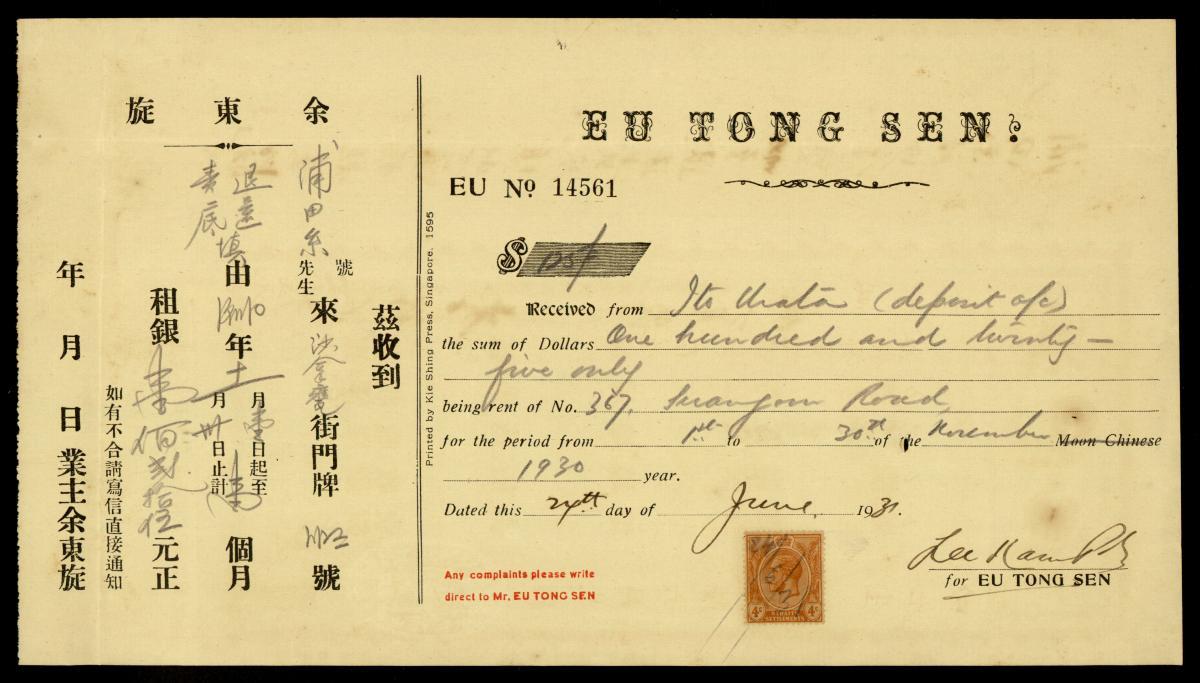 余東旋
茲收到
浦田糸
號
先生
來
街門牌
號
退還
責底
填
由
年
月
日起至
月
日止計
個月
租銀
壹佰貳拾伍
元正
如有不合請寫信直接通知
年月日業主余東旋
Printed by Kie Shing Press, Singapore. 1595
EU TONG SEN.
EU No 14561
$ 125/
Received from Ito Urata (deposit a/c)
the sum of Dollars One hundred and twenty-
five only
being rent of No. 367, Serangoon Road,
for the period from 1st to 30th of the November Moon Chinese
1930 year.
Dated this 24th day of June, 1931.
Any complaints please write
direct to Mr. EU TONG SEN
4c 4c
SETTLEMENTS
for EU TONG SEN